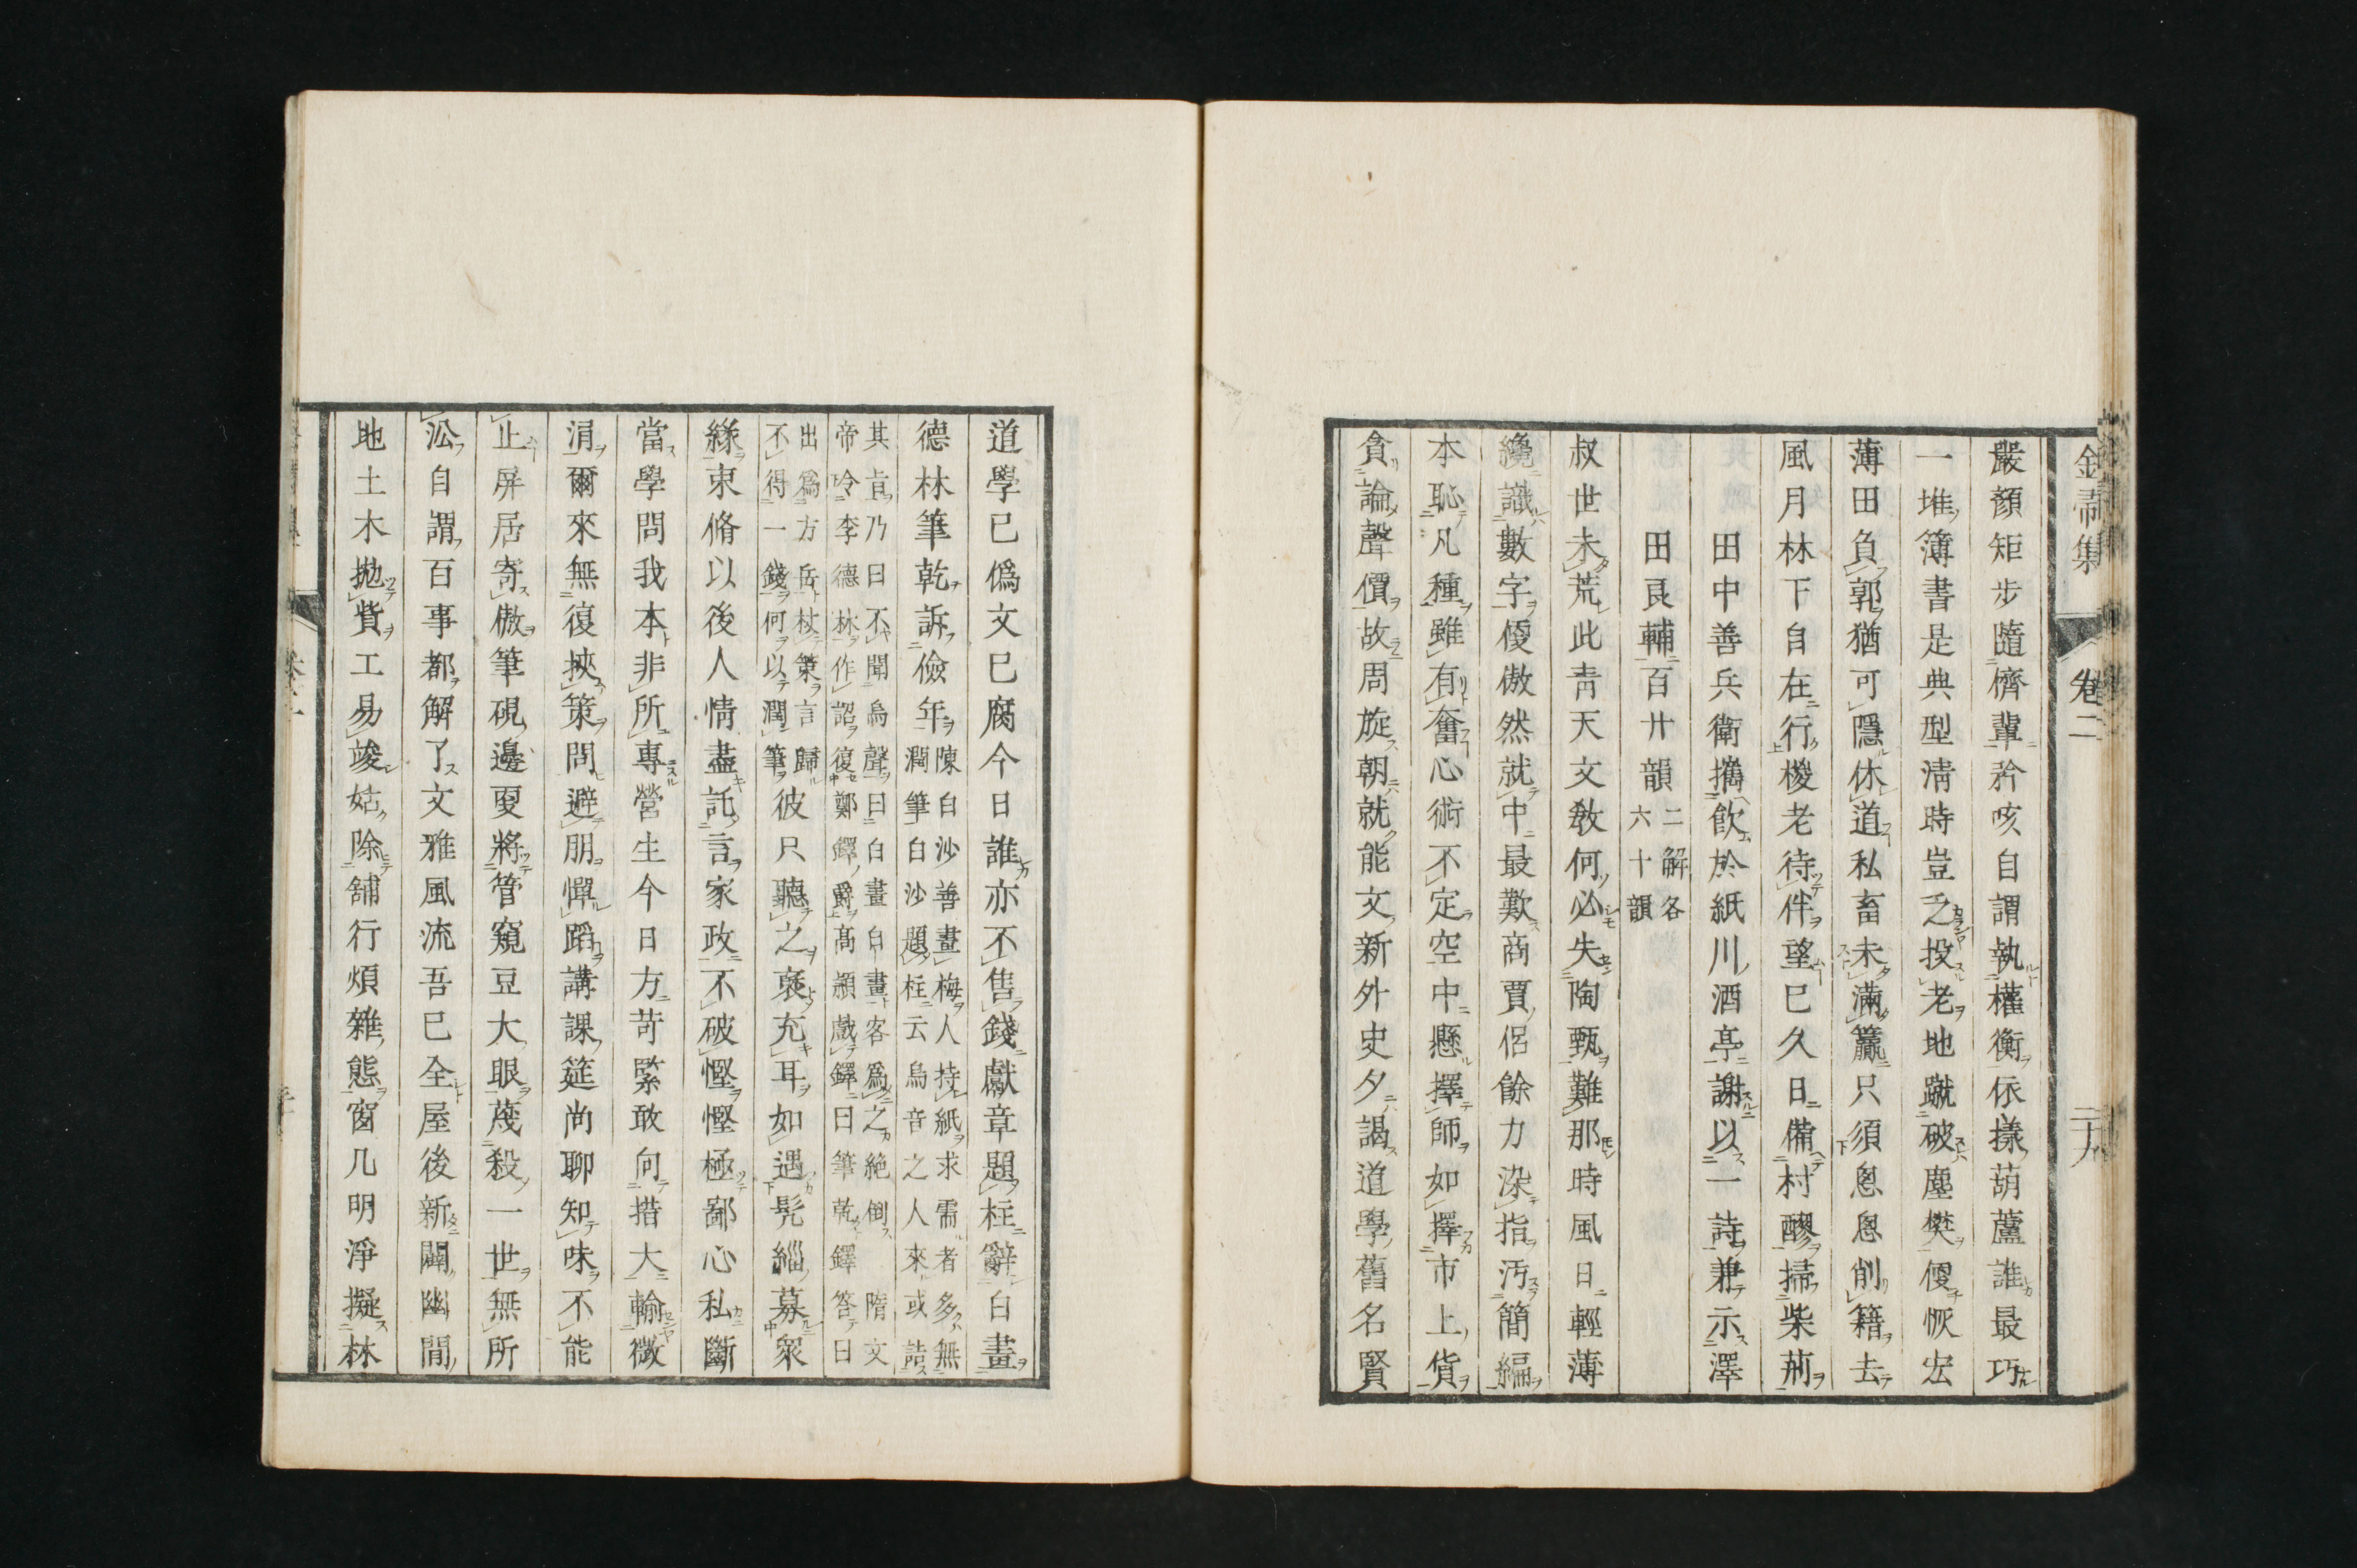 金帚集 卷二 二十九
嚴顏矩步蹈儕輩矜咳自謂執權衡依樣葫蘆誰最巧
一堆簿書是典型淸時豈乏投老地蹴破塵樊便恢宏
薄田負郭猶可隱休道私畜未滿籯只須恩恩削籍去
風月林下自在行椶老待伴望已久日備村醪掃柴荊
田中善兵衛攜飮於紙川酒亭謝以一詩兼示澤
田良輔百廿韻二解各六十韻
叔世未荒此靑天文敎何必失陶甄難那時風日輕薄
纔識數字便傲然就中最歎商賈侶餘力染指汚簡編
本恥凡種雖有奮心術不定空中懸擇師如擇市上貨
貪論聲價故周旋朝就能文新外史夕謁道學舊名賢
道學已僞文已腐今日誰亦不售錢獻章題柱辭白畫
德林筆乾訴儉年陳白沙善畫梅人持紙求需者多無潤筆白沙題柱云烏音之人來或詰
其旨乃曰不聞烏聲曰白畫白畫客爲之絶倒隋文帝呤李德林作詔復鄭鐸爵高熲戲鐸曰筆乾鐸答曰
出爲方岳杖策言歸不得一錢何以潤筆彼只聽之褎充耳如遇髡緇募衆
緣束脩以後人情盡託言家政不破慳慳極鄙心私斷
當學問我本非所專營生今日方苛緊敢向措大輸微
涓爾來無復挾策問避朋憚蹈講課筵尚聊知味不能
止屛居寄傲筆硯邊更將管窺豆大眼蔑殺一世無所
㳂自謂百事都解了文雅風流吾已全屋後新闢幽閒
地土木拋貲工易竣姑除舖行煩雜態窗几明淨擬林